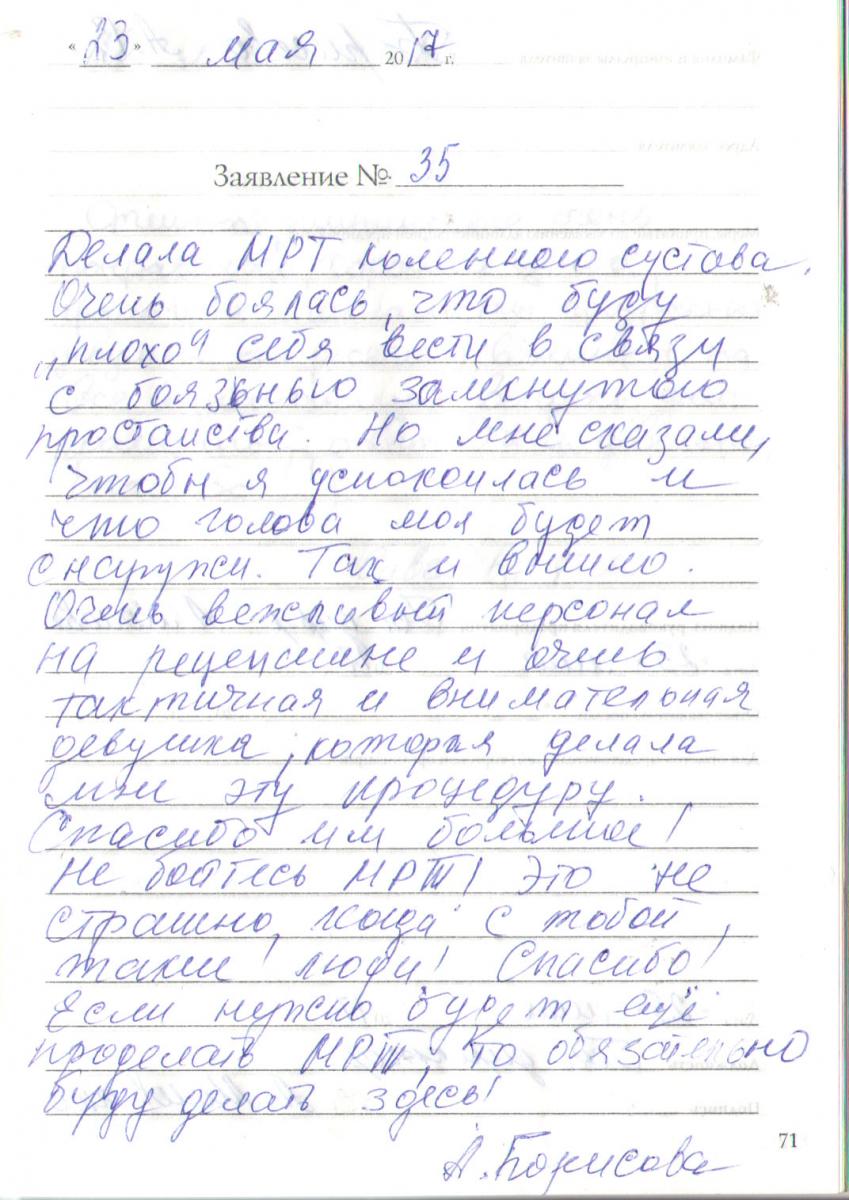 "23" мая 2017 г.
Заявление № 35
Делала МРТ коленного сустава.
Очень боялась, что буду
„плохо" себя вести в связи
с боязнью замкнутого
простанства. Но мне сказали,
чтобы я успокоилась и
что голова моя будет
снаружи. Так и вышло.
Очень вежливый персонал
на рецепшине и очень
тактичная и внимательная
девушка, которая делала
мне эту процедуру.
Спасибо им большое!
Не бойтесь МРТ! Это не
страшно, когда с тобой
такие люди! Спасибо!
Если нужно будет ещё
проделать МРТ, то обязательно
буду делать здесь!
А. Борисова
71